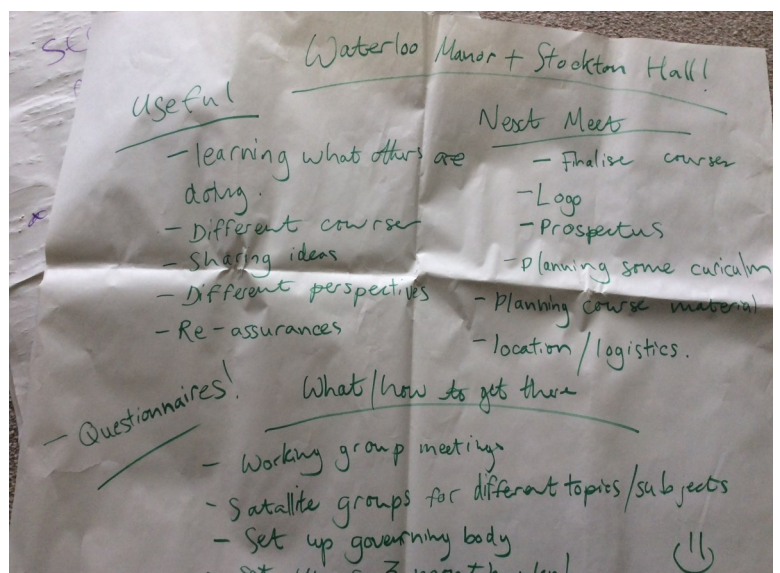 Waterloo Manor + Stockton Hall!
Useful
- learning what others are
doing.
- Different courses
- Sharing ideas
- Different perspectives
- Re-assurances
- Questionnaires!
Next Meet
- Finalise courses
- Logo
- Prospectus
- Planning some curiculm
- Planning course material
- location/logistics.
What/how to get there
- Working group meetings
- Satallite groups for different topics/subjects
- Set up governing body